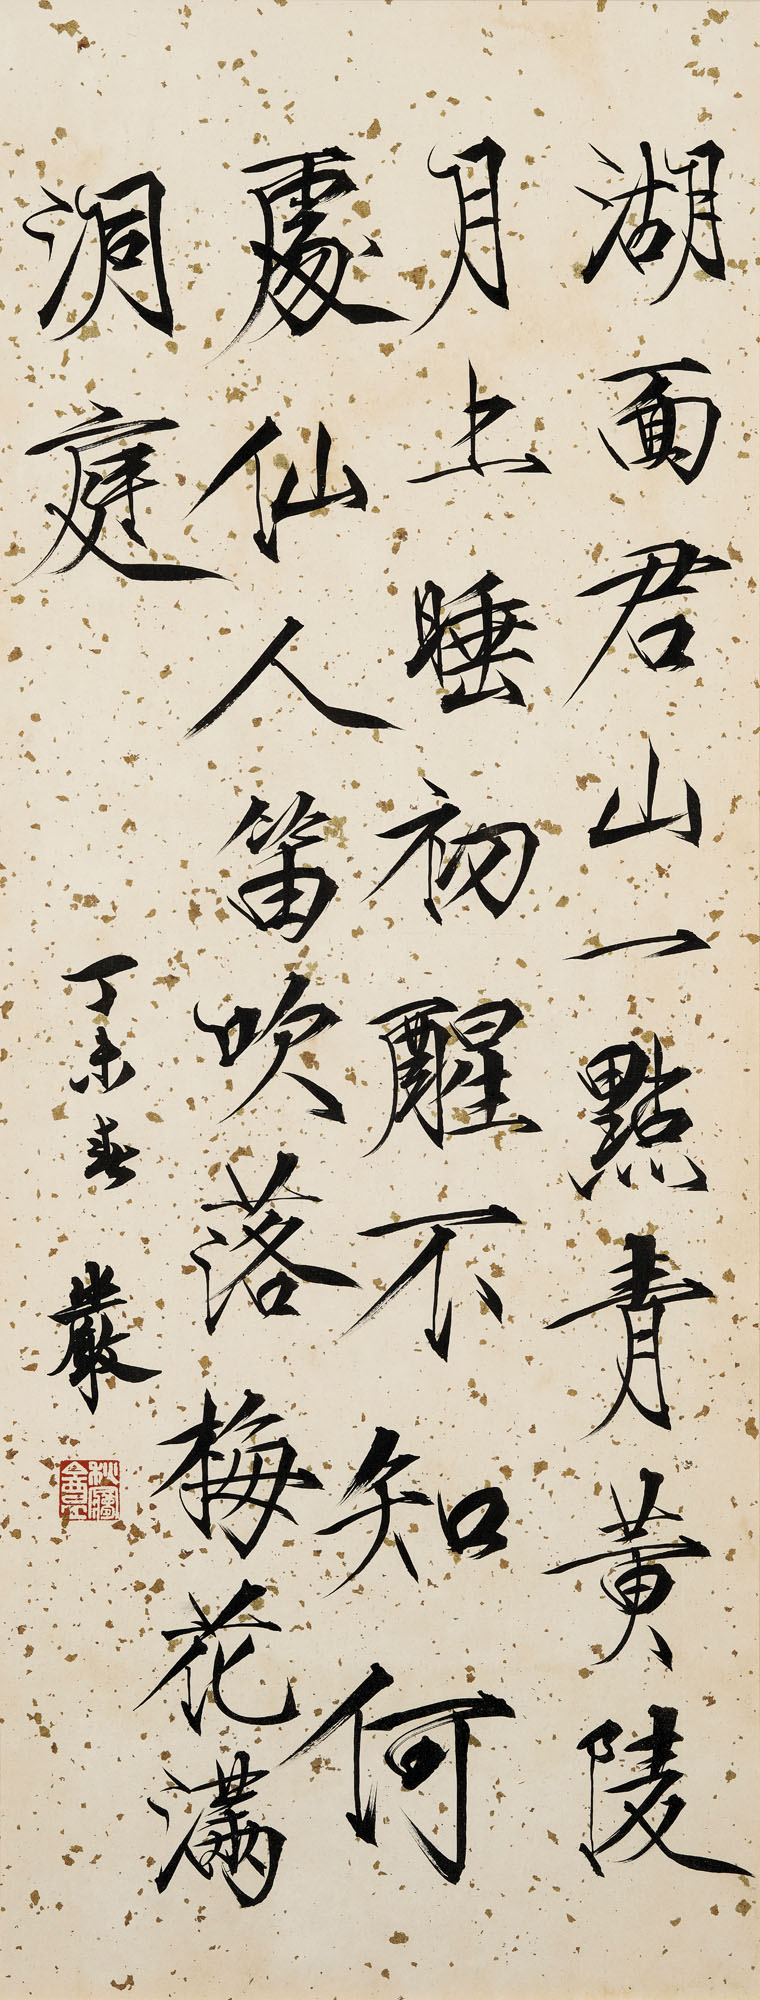 湖面君山一點青黃陵
月上睡初醒不知何
處仙人笛吹落梅花滿
洞庭
丁未春
嚴